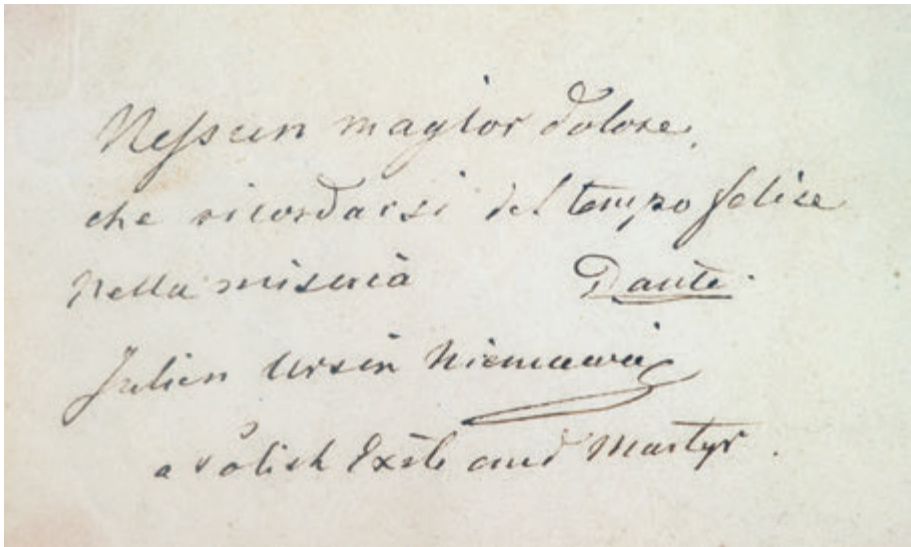 Nessun magior dolore,
che ricordarsi del tempo felice
nella miseria Dante.
Julien Ursin Niemcewicz
a Polish Exile and Martyr.